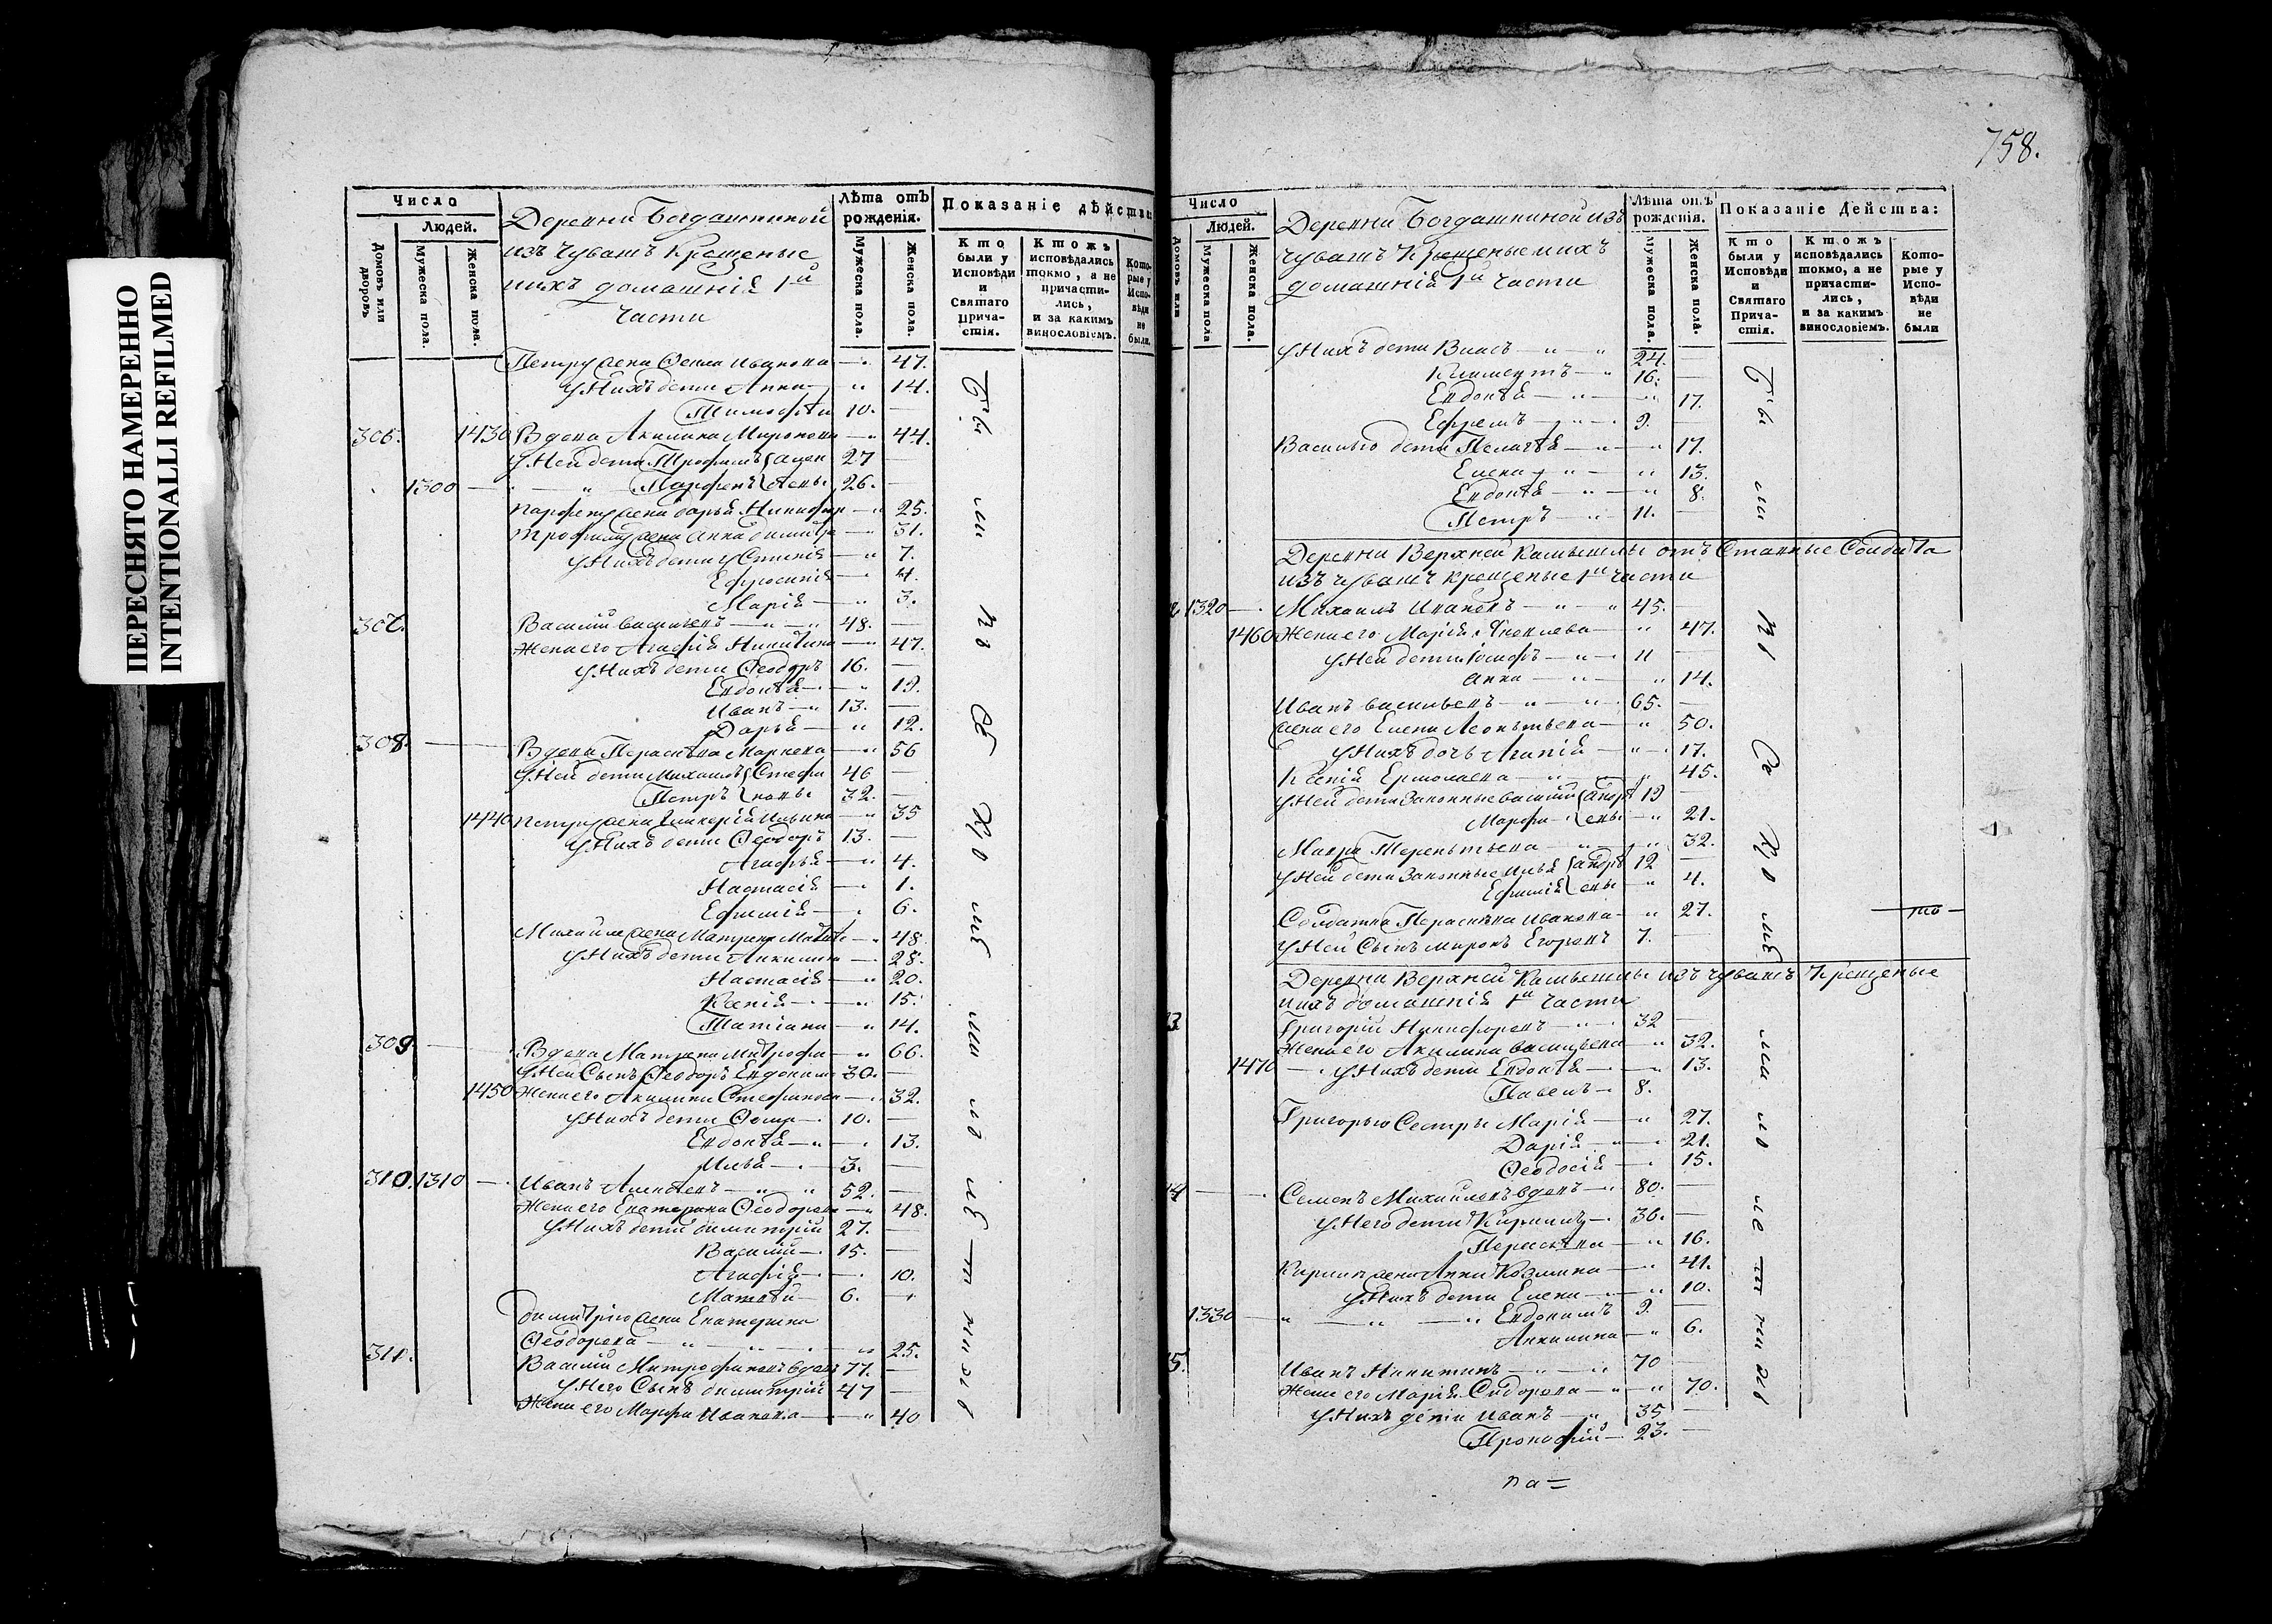 ПЕРЕСНЯТО НАМЕРЕННО
INTENTIONALLI REFILMED
Число
Людей.
Домовъ или дворовъ
Мужеска пола.
Женска пола.
Деревни Богдашкиной
изъ чувашъ крещеные
ихъ домашнія 1й
части
Лѣта отъ рожденія.
Мужеска пола.
Женска пола.
Показаніе дѣйства
Кто были у Исповѣди и Святаго Причастія.
Ктожъ исповѣдались токмо, а не причастились, и за какимъ винословіемъ.
Которые у Исповѣди не были.
Петру жена Ѳекла Иванова — 47.
У Нихъ дети Анна — 14.
Тимоѳей 10. —
305. 1430 Вдова Акилина Миронова — 44.
У Ней дети Трофимъ 27 —
1300 — Парфенъ 26. —
Парфену жена Дарья Никифор — 25.
Трофиму жена Анна Димитр — 31.
У Нихъ дети Устинія — 7.
Ефросинія — 4.
Марія — 3.
Василій Васильевъ — 48. —
Жена его Агафія Никитина — 47.
У Нихъ дети Ѳеодоръ 16. —
Евдокѣя — 19.
Иванъ — 13. —
Дарья — 12.
308. Вдова Параскѣва Маркова — 56
У Ней дети Михаилъ Стефа 46 —
Петръ новы 32. —
1440 Петру жена Гликерія Ильина — 35
У Нихъ дети Ѳеодоръ 13. —
Агафья — 4.
Настасія — 1.
Ефимія — 6.
Михайле жена Матрена — 48.
У Нихъ дети Акилина — 28.
Настасія — 20.
Ксенія — 15.
Татіана — 14.
309. Вдова Матрена Митрофа — 66.
У Ней Сынъ Ѳеодоръ Евдоким 30. —
1450 Жена его Акилина Стефанова — 32.
У Нихъ дети Ѳома — 10. —
Евдокѣя — 13.
Илья — 3. —
310. 1310 Иванъ Алексѣевъ — 52. —
Жена его Екатерина Ѳеодорова — 48.
У Нихъ дети Димитрій 27. —
Василій — 15. —
Агафія — 10.
Матвѣй — 6. —
Димитрію жена Екатерина
Ѳеодорова — 25.
311. Василій Митрофановъ вдовъ 77. —
У Него Сынъ Димитрій 47 —
Жена его Марфа Иванова — 40
758.
Число
Людей.
Домовъ или
Мужеска пола
Женска пола.
Деревни Богдашкиной изъ
чувашъ крещеные и ихъ
домашнія 1й части
Лѣта отъ рожденія.
Мужеска пола.
Женска пола.
Показаніе Действа:
Кто были у Исповѣди и Святаго Причастія.
Ктожъ исповѣдались токмо, а не причастились, и за какимъ винословіемъ.
Которые у Исповѣди не были
У Нихъ дети Власъ — 24. —
Климентъ — 16. —
Евдокѣя — 17.
Ефремъ — 9. —
Василью дети Пелагѣя — 17.
Елена — 13.
Евдокѣя — 8.
Петръ — 11. —
Деревни Верхней Камышлы отъ Ставные Солдата
изъ чувашъ крещеные 1й части
1320 Михаилъ Ивановъ — 45. —
1460 Жена его Марія Яковлева — 47.
У Ней дети Іосифъ — 11 —
Анна — 14.
Иванъ Васильевъ — 65. —
Жена его Елена Леонтьева — 50.
У Нихъ дочь Агапія — 17.
Ксенія Ермолаева — 45.
У Ней дети Законные Василій 19 —
Марфа — 21.
Мавра Терентьева — 32.
У Ней дети Законные Илья 12 —
Ефимія — 4.
Солдатка Параскѣва Иванова — 27.
У Ней Сынъ Миронъ Егоровъ 7. —
Деревни Верхней Камышлы изъ чувашъ крещеные
ихъ домашнія 1й части
Григорій Никифоровъ — 32 —
Жена его Акилина Васильева — 32.
1470 — У Нихъ дети Евдокѣя — 13.
Павелъ — 8.
Григорью Сестры Марія — 27.
Дарія — 21.
Ѳеодосія — 15.
Семенъ Михайловъ вдовъ — 80. —
У Него дети Кирилъ — 36. —
Параскѣва — 16.
Кирилы жена Анна Козмина — 41.
У Нихъ дети Елена — 10.
1330 — Евдокимъ 9. —
Акилина — 6.
Иванъ Никитинъ — 70 —
Жена его Марія Сидорова — 70.
У Нихъ дети Иванъ — 35 —
Прокофій — 23. —
па=